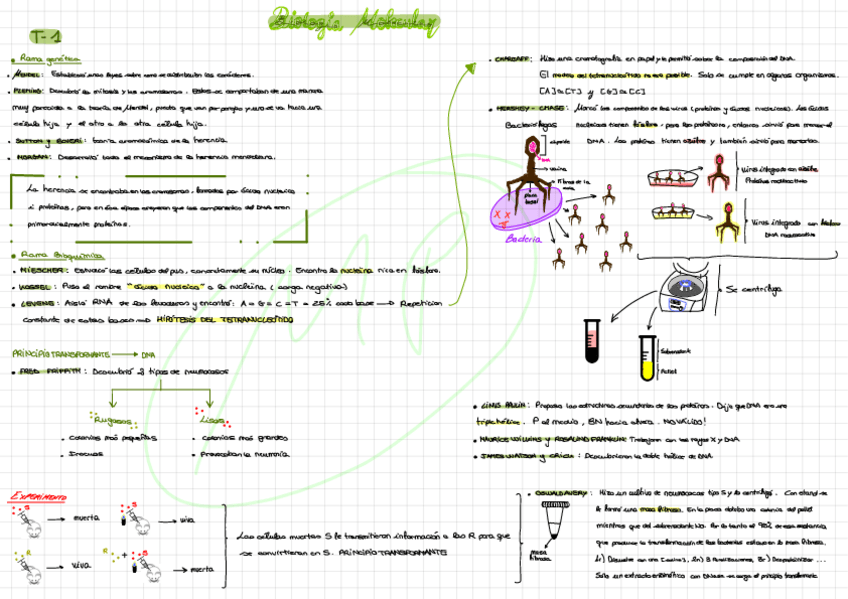 Biología Molecular
T-1
Rama genética
• MENDEL: Estableció unas leyes sobre como se distribuían los caracteres.
• FLEMING: Descubrió la mitosis y los cromosomas. Estos se comportaban de una manera
muy parecida a la teoría de Mendel, puesto que van por parejas y uno va hacia una
célula hija y el otro a la otra célula hija.
• SUTTON y BOVERI: teoría cromosómica de la herencia.
• MORGAN: Desarrolló todo el mecanismo de la herencia mendeliana.
La herencia se encontraba en los cromosomas, formados por ácidos nucleicos
y proteínas, pero en esa época creyeron que los componentes del DNA eran
primordialmente proteínas.
Rama Bioquímica
• MIESCHER: Extrajo las células del pus, concretamente su núcleo. Encontró la nucleína rica en fósforo.
• KOSSEL: Puso el nombre "ácidos nucleicos" a la nucleína (carga negativa)
• LEVENE: Aisló RNA de las levaduras y encontró: A = G = C = T = 25% cada base → Repetición
constante de estas bases → HIPÓTESIS DEL TETRANUCLEÓTIDO
PRINCIPIO TRANSFORMANTE → DNA
• FRED GRIFFITH: Descubrió 2 tipos de neumococos
Rugosas
Lisas
• Colonias más pequeñas
• Inocuas
• Colonias más grandes
• Provocaban la neumonía
EXPERIMENTO
S → muerta
S → viva
R → viva
R + S → muerta
Las células muertas S le transmitieron información a las R para que
se convirtieran en S. PRINCIPIO TRANSFORMANTE
• CHARGAFF: Hizo una cromatografía en papel y le permitió saber la composición del DNA.
El modelo del tetranucleótido no era posible. Solo se cumple en algunos organismos.
[A]≈[T] y [G]≈[C]
• HERSHEY - CHASE: Marcó los componentes de los virus (proteínas y ácidos nucleicos). Los ácidos
Bacteriófagos
nucleicos tienen fósforo, para las proteínas, entonces sirvió para marcar el
DNA. Las proteínas tienen azufre y también sirvió para marcarlas.
cápside
DNA
vaina
Fibras de la
cola
placa
basal
Bacteria
Virus integrado en azufre
Proteínas radioactivas
Virus integrado con fósforo
DNA radioactivo
Se centrifuga
Sobrenadante
Pellet
• LINUS PAULIN: Propuso las estructuras secundarias de las proteínas. Dijo que DNA era una
triple hélice. P al medio, BN hacia afuera. NO VÁLIDO!
• MAURICE WILKINS y ROSALIND FRANKLIN: Trabajaron con los rayos X y DNA
• JAMES WATSON y CRICK: Descubrieron la doble hélice de DNA
• OSWALD AVERY: Hizo un cultivo de neumococos tipo S y lo centrifugó. Con etanol se
le formó una masa fibrosa. En la placa
masa
fibrosa